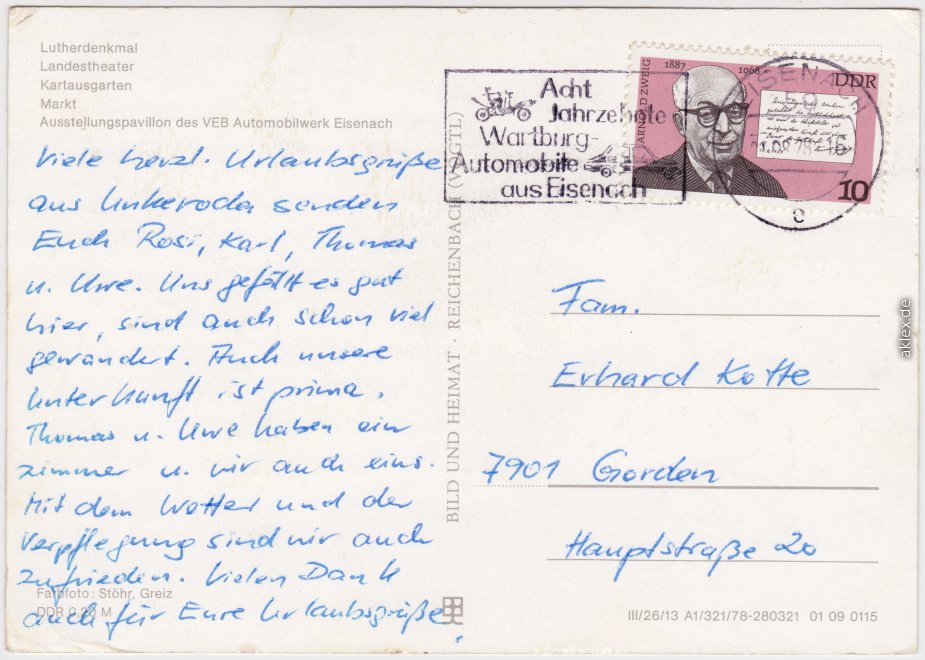 Lutherdenkmal
Landestheater
Kartausgarten
Markt
Ausstellungspavillon des VEB Automobilwerk Eisenach
Viele herzl. Urlaubsgrüße
aus Unkeroda senden
Euch Rosi, Karl, Thomas
u. Uwe. Uns gefällt es gut
hier, sind auch schon viel
gewandert. Auch unsere
Unterkunft ist prima.
Thomas u. Uwe haben ein
Zimmer u. wir auch eins.
Mit dem Wetter und der
Verpflegung sind wir auch
zufrieden. Vielen Dank
auch für Eure Urlaubsgrüße.
Farbfoto: Stöhr, Greiz
DDR 0,20 M
BILD UND HEIMAT · REICHENBACH (VOGTL)
Acht
Jahrzehnte
Wartburg-
Automobile
aus Eisenach
ARNOLD ZWEIG
1887 1968
DDR
10
EISENACH
21.08.78-16
e
Fam.
Erhard Kotte
7901 Gorden
Hauptstraße 20
III/26/13 A1/321/78-280321 01 09 0115
aklex.de